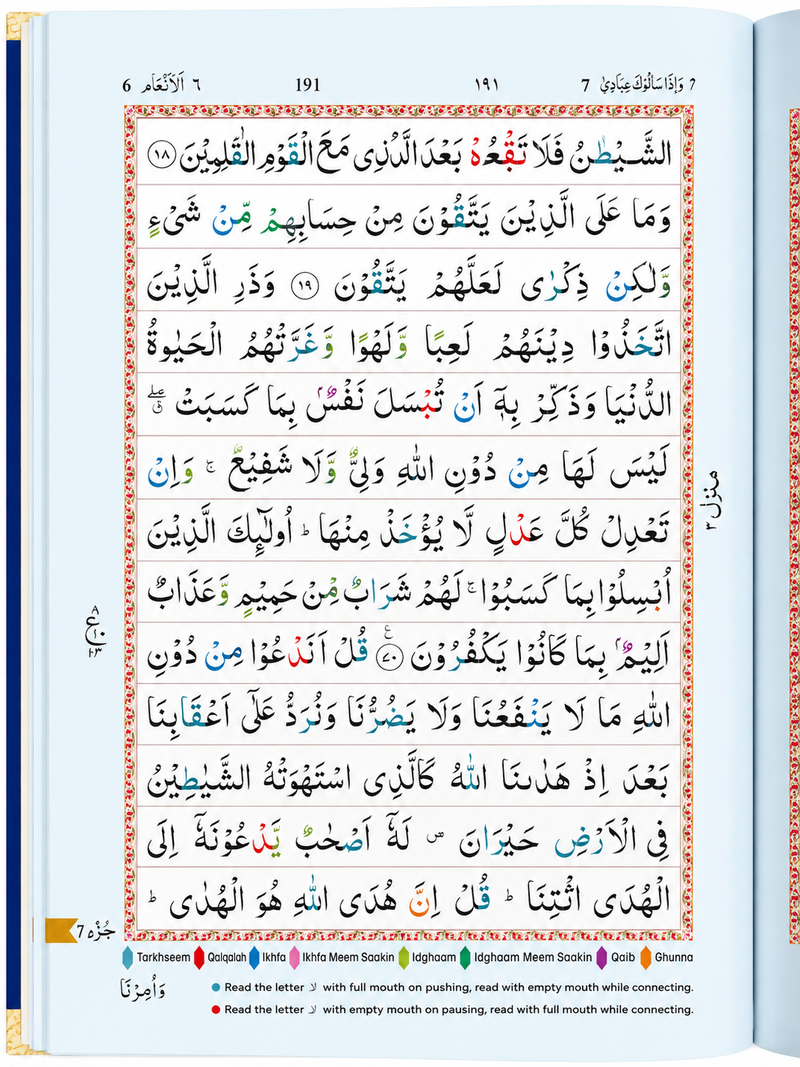 6 اَلْاَنْعَام ٦ 191 ١٩١ 7 وَاِذَا سَاَلُوْكَ عِبَادِيْ ٧
الشَّـيْطٰنُ فَلَا تَقْعُهْ بَعْدَ الدُّذِی مَعَ الْقَوْمِ الْقّٰلِمِيْنَ ١٨
وَمَا عَلَی الَّذِيْنَ يَتَّقُوْنَ مِنْ حِسَابِهِمْ مِّنْ شَیْءٍ
وَّلٰكِنْ ذِكْرٰی لَعَلَّهُمْ يَتَّقُوْنَ ١٩ وَذَرِ الَّذِيْنَ
اتَّخَذُوْا دِيْنَهُمْ لَعِبًا وَّلَهْوًا وَّغَرَّتْهُمُ الْحَيٰوةُ
الدُّنْيَا وَذَكِّرْ بِهٖٓ اَنْ تُبْسَلَ نَفْسٌۢ بِمَا كَسَبَتْ
لَيْسَ لَهَا مِنْ دُوْنِ اللّٰهِ وَلِیٌّ وَّلَا شَفِيْعٌ ۚ وَاِنْ
تَعْدِلْ كُلَّ عَدْلٍ لَّا يُؤْخَذْ مِنْهَا ؕ اُولٰٓئِكَ الَّذِيْنَ
اُبْسِلُوْا بِمَا كَسَبُوْا ۚ لَهُمْ شَرَابٌ مِّنْ حَمِيْمٍ وَّعَذَابٌ
اَلِيْمٌۢ بِمَا كَانُوْا يَكْفُرُوْنَ ٧٠ قُلْ اَنَدْعُوْا مِنْ دُوْنِ
اللّٰهِ مَا لَا يَنْفَعُنَا وَلَا يَضُرُّنَا وَنُرَدُّ عَلٰٓی اَعْقَابِنَا
بَعْدَ اِذْ هَدٰىنَا اللّٰهُ كَالَّذِی اسْتَهْوَتْهُ الشَّيٰطِيْنُ
فِی الْاَرْضِ حَيْرَانَ ۪ لَهٗٓ اَصْحٰبٌ يَّدْعُوْنَهٗٓ اِلَی
الْهُدَی ائْتِنَا ؕ قُلْ اِنَّ هُدَی اللّٰهِ هُوَ الْهُدٰی ؕ
منزل ٢
٨
ع
١٠
7 جُزْه
Tarkhseem Qalqalah Ikhfa Ikhfa Meem Saakin Idghaam Idghaam Meem Saakin Qaib Ghunna
وَاُمِرْنَا
Read the letter لا with full mouth on pushing, read with empty mouth while connecting.
Read the letter لا with empty mouth on pausing, read with full mouth while connecting.